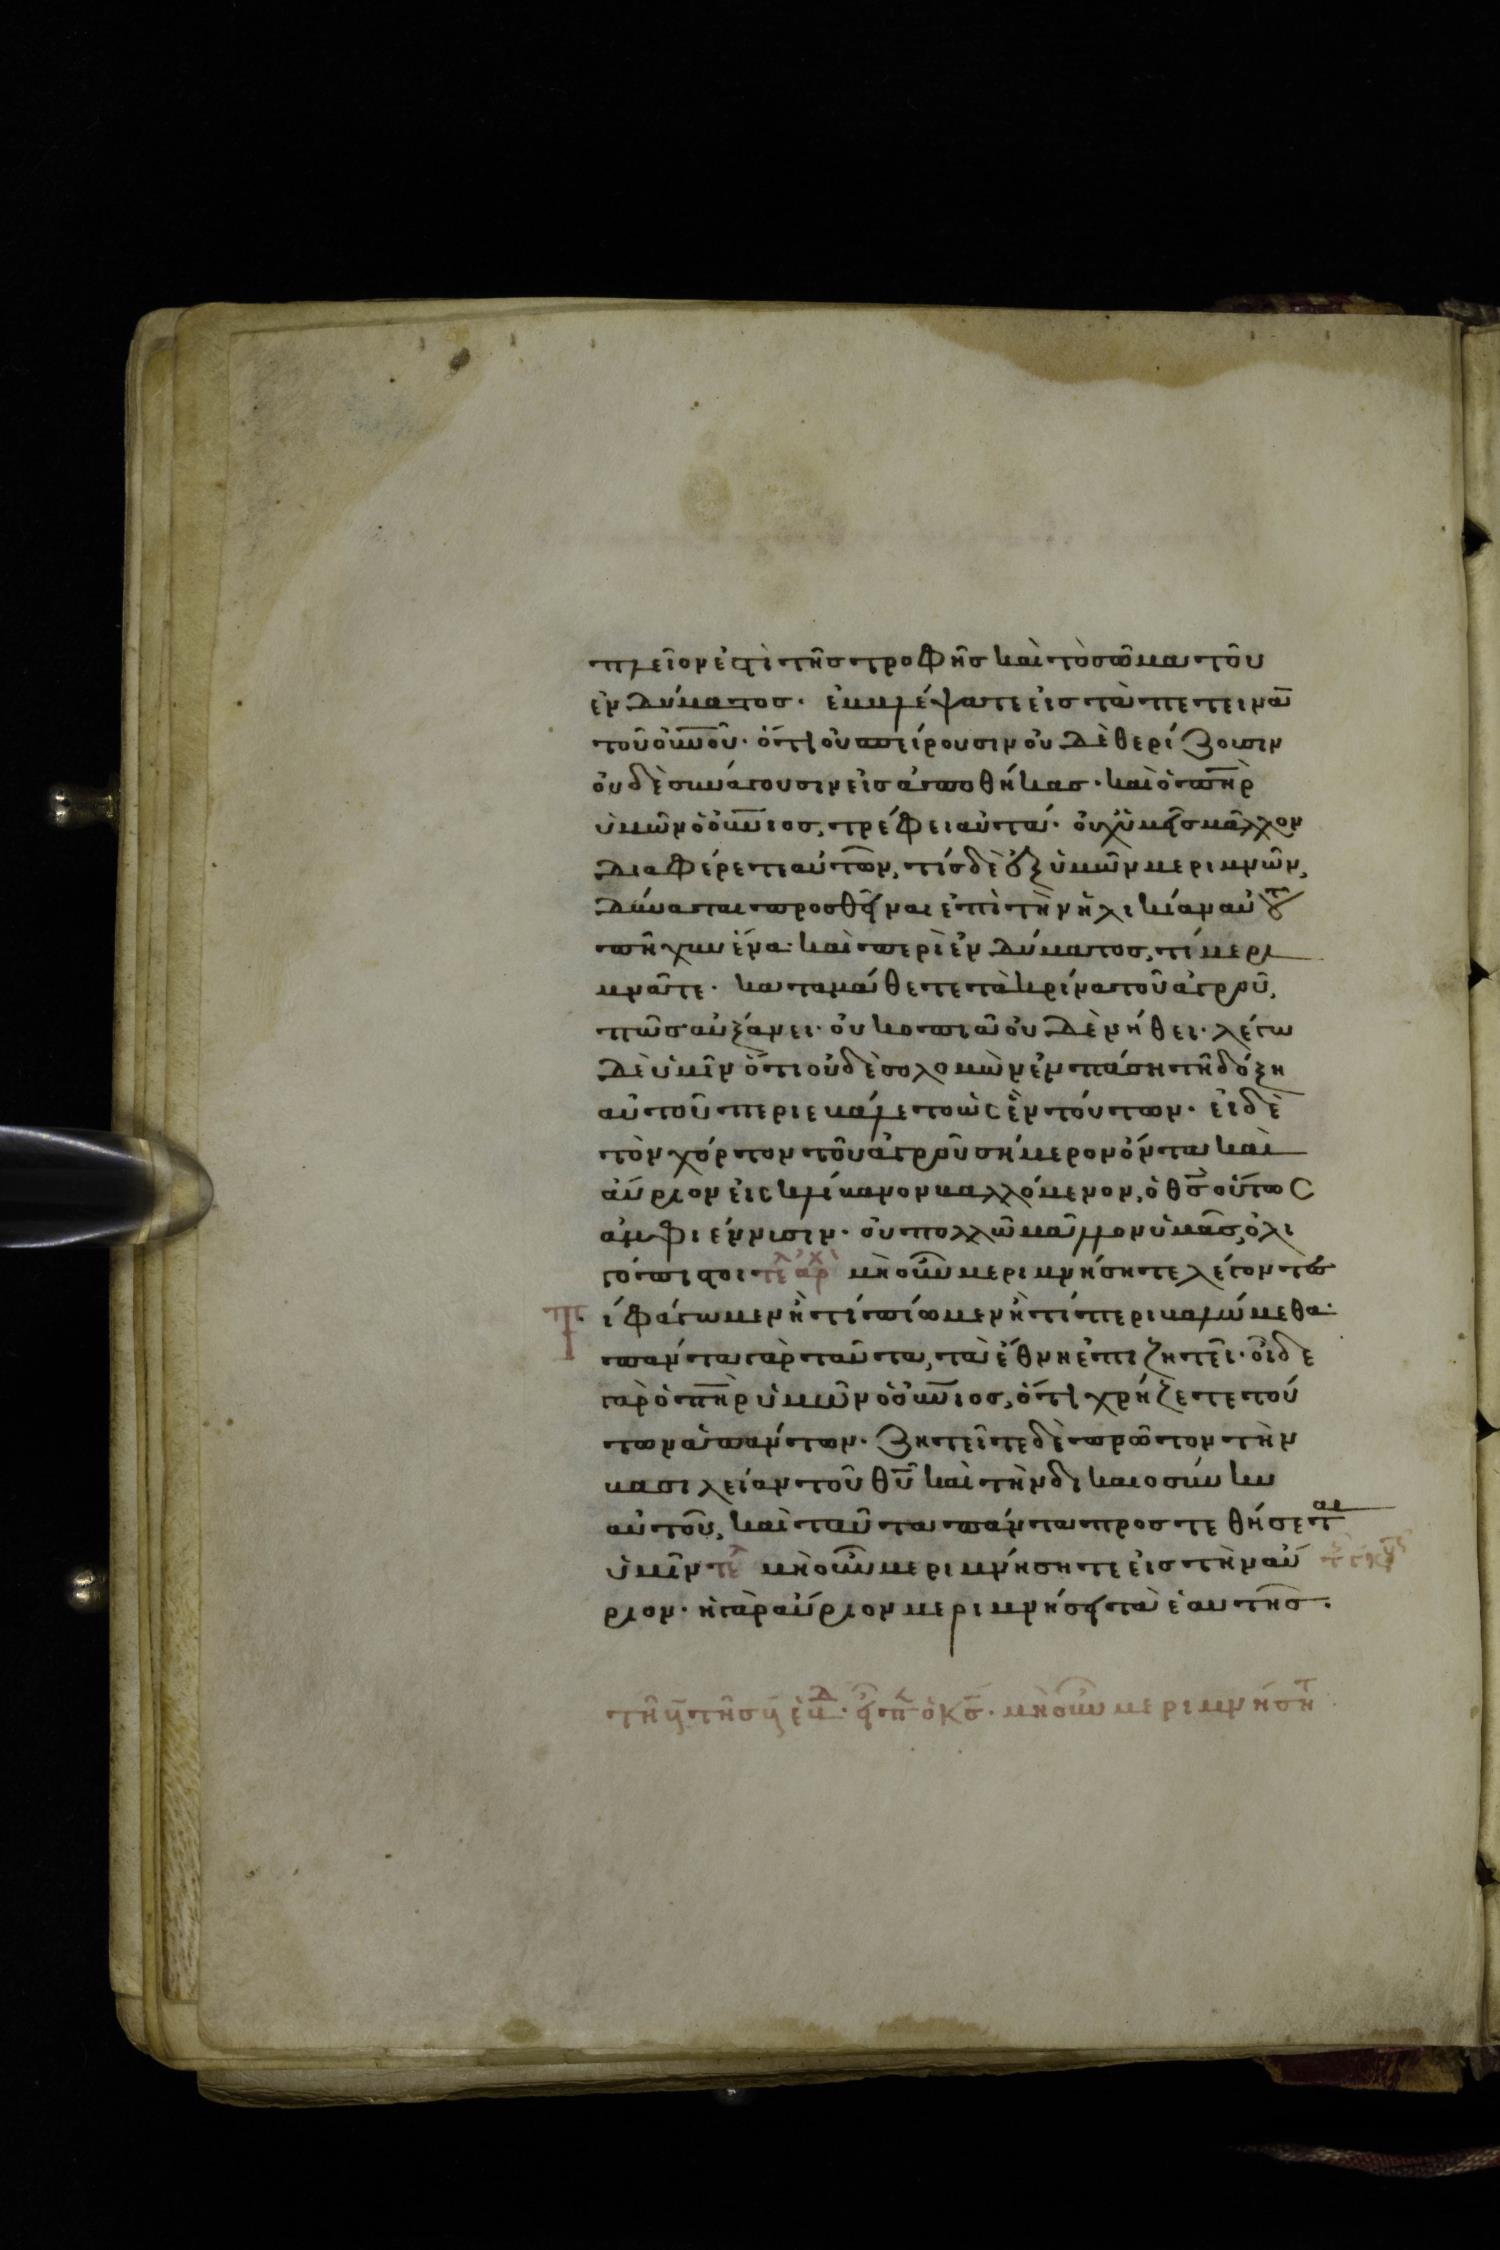 πλεῖον ἐστὶ τῆς τροφῆς καὶ τὸ σῶμα τοῦ
ἐνδύματος· ἐμβλέψατε εἰς τὰ πετεινὰ
τοῦ οὐνοῦ· ὅτι οὐ σπείρουσιν οὐδὲ θερίζουσιν
οὐδὲ συνάγουσιν εἰς ἀποθήκας· καὶ ὁ πηρ
ὑμῶν ὁ οὐνιος, τρέφει αὐτά· οὐχ ὑμεῖς μᾶλλον
διαφέρετε αὐτῶν, τίς δὲ ἐξ ὑμῶν μεριμνῶν,
δύναται προσθεῖναι ἐπὶ τὴν ἡλικίαν αὐτοῦ
πῆχυν ἕνα· καὶ περὶ ἐνδύματος, τί μερι
μνᾶτε· καταμάθετε τὰ κρίνα τοῦ ἀγροῦ,
πῶς αὐξάνει· οὐ κοπιᾶ οὐδὲ νήθει· λέγω
δὲ ὑμῖν ὅτι οὐδὲ σολομὼν ἐν πάση τῆ δόξη
αὐτοῦ περιεβάλετο ὡς ἓν τούτων· εἰ δὲ
τὸν χόρτον τοῦ ἀγροῦ σήμερον ὄντα καὶ
αὔριον εἰς κλίβανον βαλλόμενον, ὁ θς οὕτως
ἀμφιέννυσιν· οὐ πολλῶ μᾶλλον ὑμᾶς, ὀλι
γόπιστοι τε αρχ μὴ οὖν μεριμνήσητε λέγοντες
τί φάγωμεν ἢ τί πίωμεν ἢ τί περιβαλώμεθα·
πάντα γὰρ ταῦτα, τὰ ἔθνη ἐπιζητεῖ· οἶδε
γὰρ ὁ πηρ ὑμῶν ὁ οὐνιος, ὅτι χρήζετε τού
των ἁπάντων· ζητεῖτε δὲ πρῶτον τὴν
βασιλείαν τοῦ θυ καὶ τὴν δικαιοσύνην
αὐτοῦ, καὶ ταῦτα πάντα προστεθήσεται
ὑμῖν τε μὴ οὖν μεριμνήσητε εἰς τὴν αὔ
ριον· ἡ γὰρ αὔριον μεριμνήσει τὰ ἑαυτῆς·
μὴ οὖν μεριμνήση